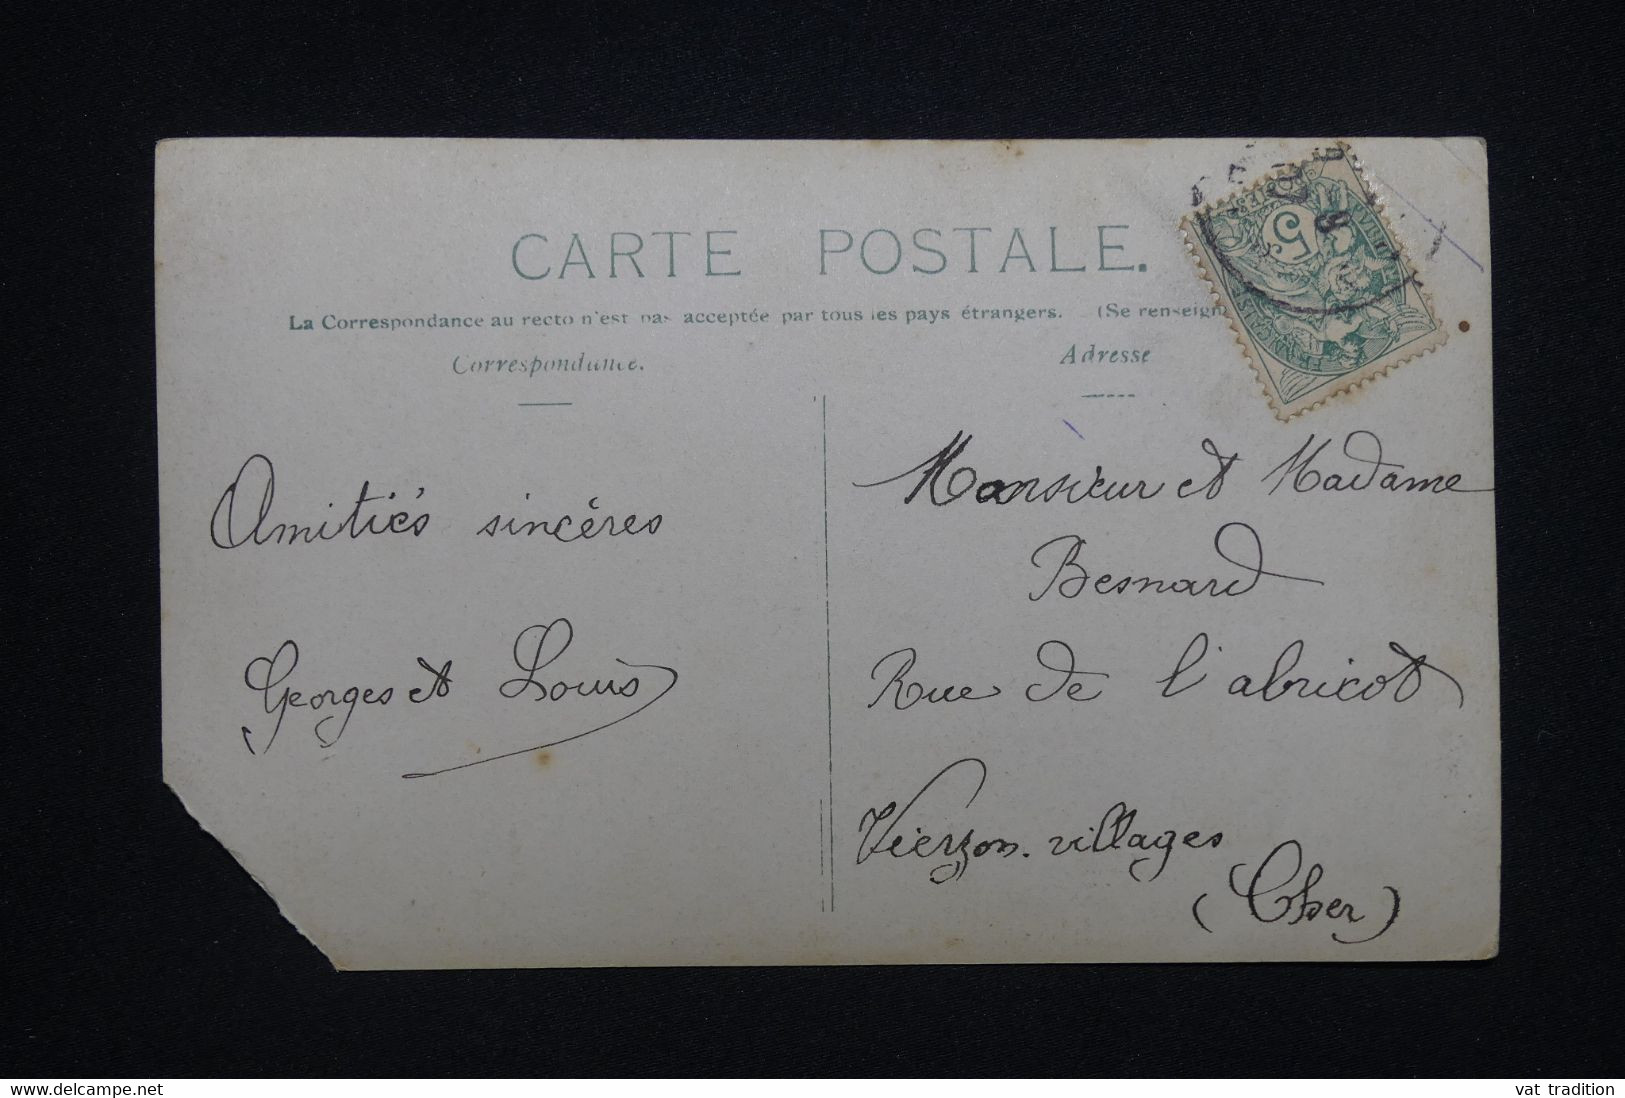 CARTE POSTALE.
La Correspondance au recto n'est pas acceptée par tous les pays étrangers. (Se renseign
Correspondance.
Adresse
5
FRANÇAISE
Amitiés sincères
Georges et Louis
Monsieur et Madame
Besnard
Rue de l'abricot
Vierzon. villages
(Cher)
www.delcampe.net
vat tradition